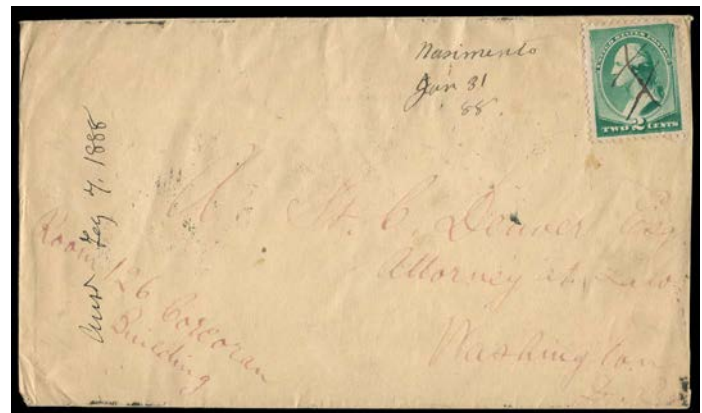 Nasimento
Jan 31
88
UNITED STATES POSTAGE
TWO 2 CENTS
Ansd Feby 7, 1888
St. C. Denver Esq
Attorney at Law
Washington
D.C.
Room 126 Corcoran
Building